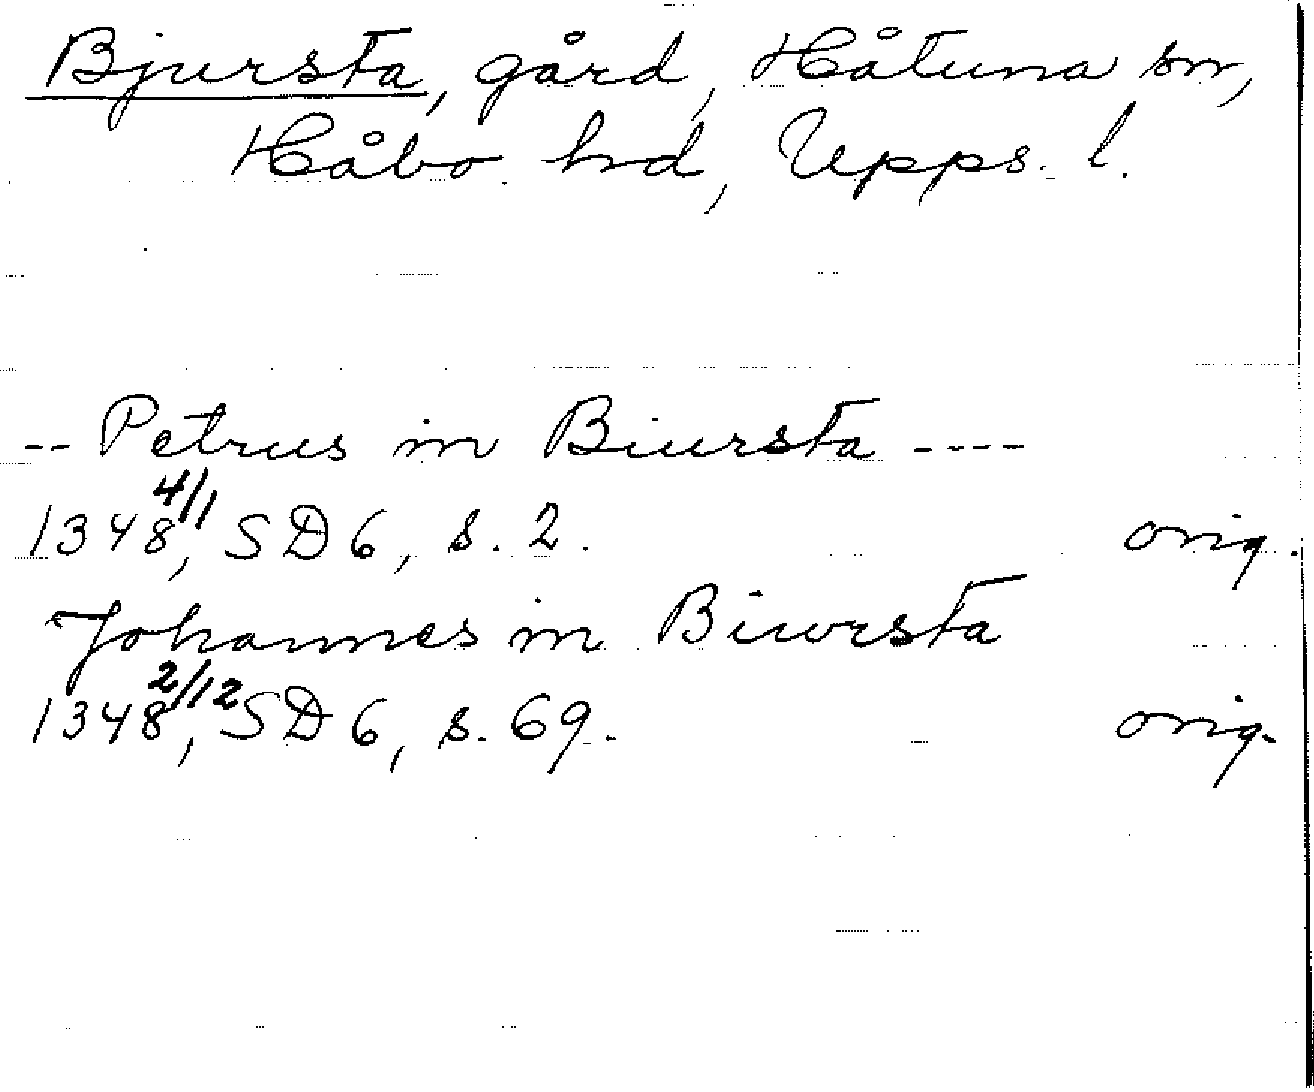 Bjursta, gård, Håtuna sn,
Håbo hd, Upps. l.
-- Petrus in Biursta ----
1348 4/1, SD 6, s. 2. orig.
Johannes in Biwrsta
1348 2/12, SD 6, s. 69. orig.